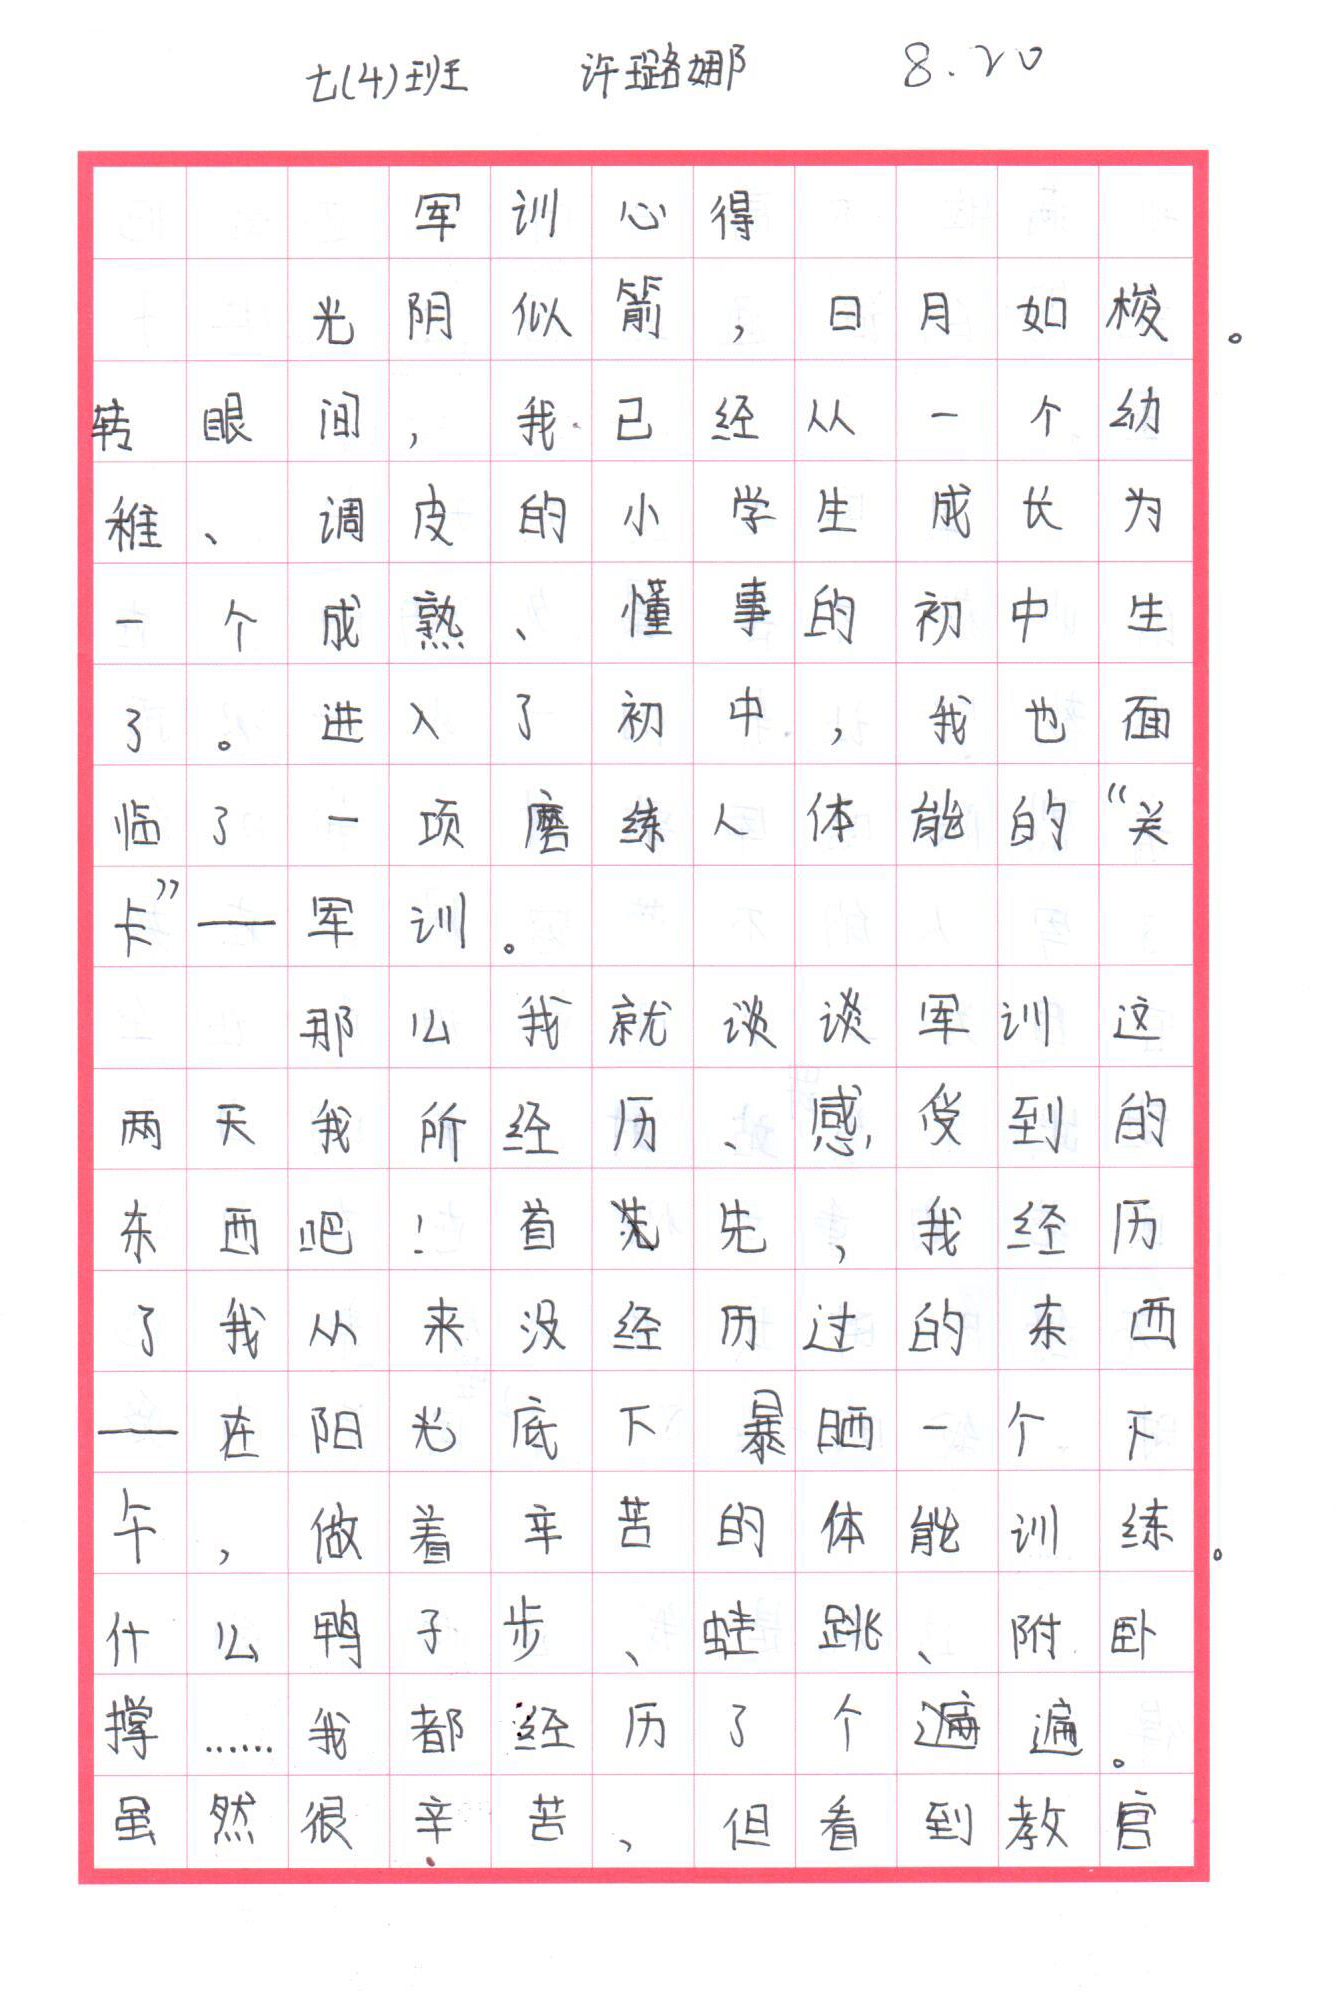 七(4)班 许璐娜 8.20
军训心得
光阴似箭，日月如梭。
转眼间，我已经从一个幼
稚、调皮的小学生成长为
一个成熟、懂事的初中生
了。进入了初中，我也面
临了一项磨练人体能的“关
卡”——军训。
那么我就谈谈军训这
两天我所经历、感受到的
东西吧！首先，我经历
了我从来没经历过的东西
——在阳光底下暴晒一个下
午，做着辛苦的体能训练。
什么鸭子步、蛙跳、附卧
撑……我都经历了个遍。
虽然很辛苦，但看到教官